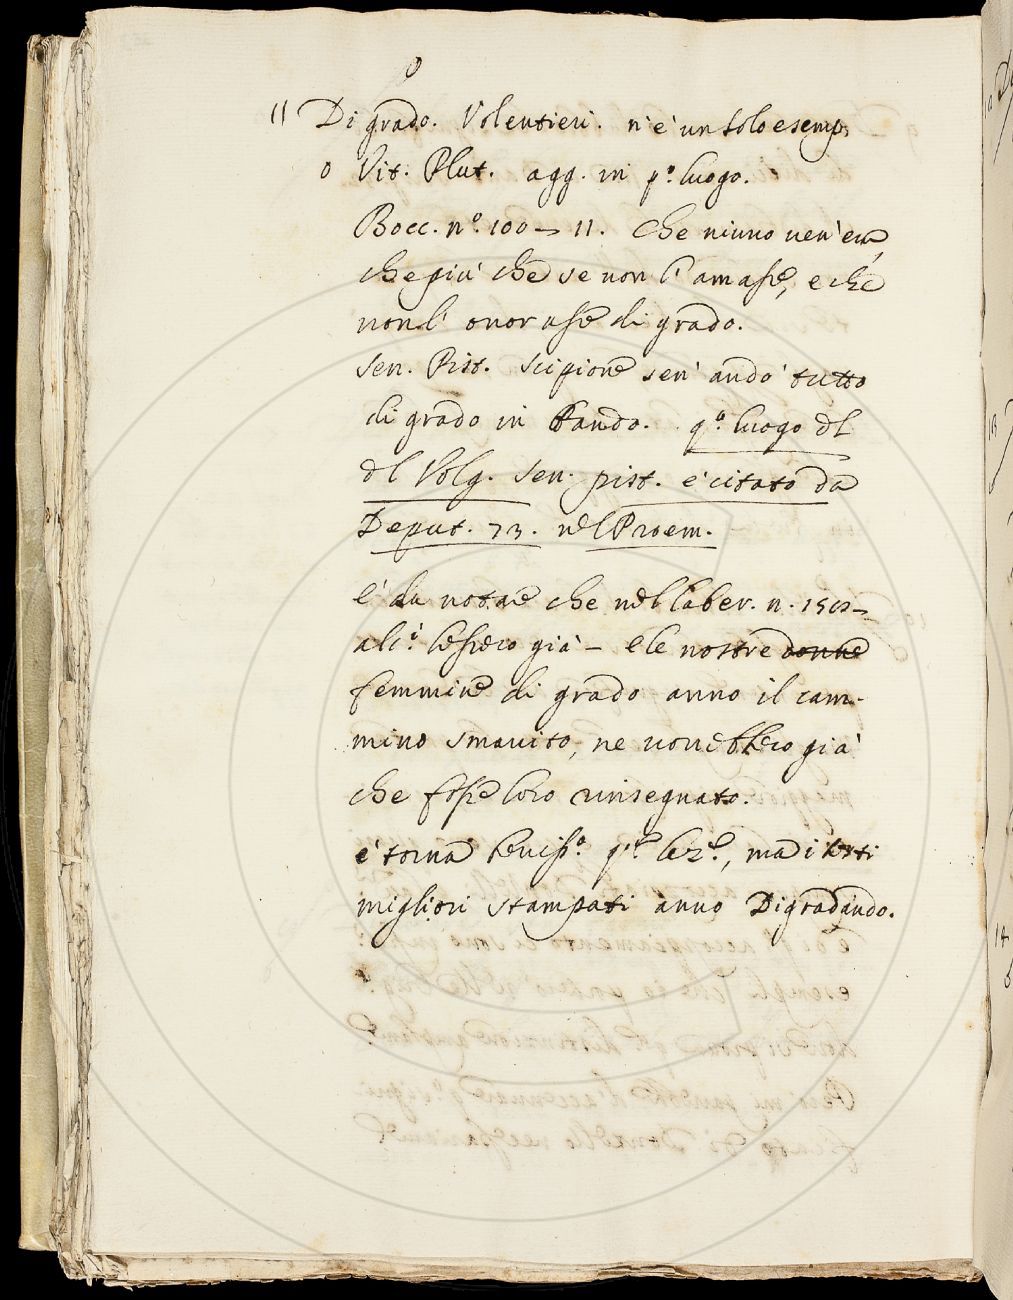 11 Di grado. Volentieri. n'è un solo esemp.
o Vit. Plut. agg. in p.º luogo.
Bocc. n.º 100 - 11. Che niuno ven'era
che più che se non l'amasse, e che
non l'onorasse di grado.
Sen. Pist. Scipione sen'andò tutto
di grado in bando. q.º luogo del
del Volg. Sen. pist. è citato da
Deput. 73. nel Proem.
è da notare che nel Laber. n.
già - e le nostre donne
femmine di grado anno il cam-
mino smarito, ne vorebbero già
che fosse loro rinsegnato.
e torna ma i testi
migliori stampati anno Digradando.
11
14